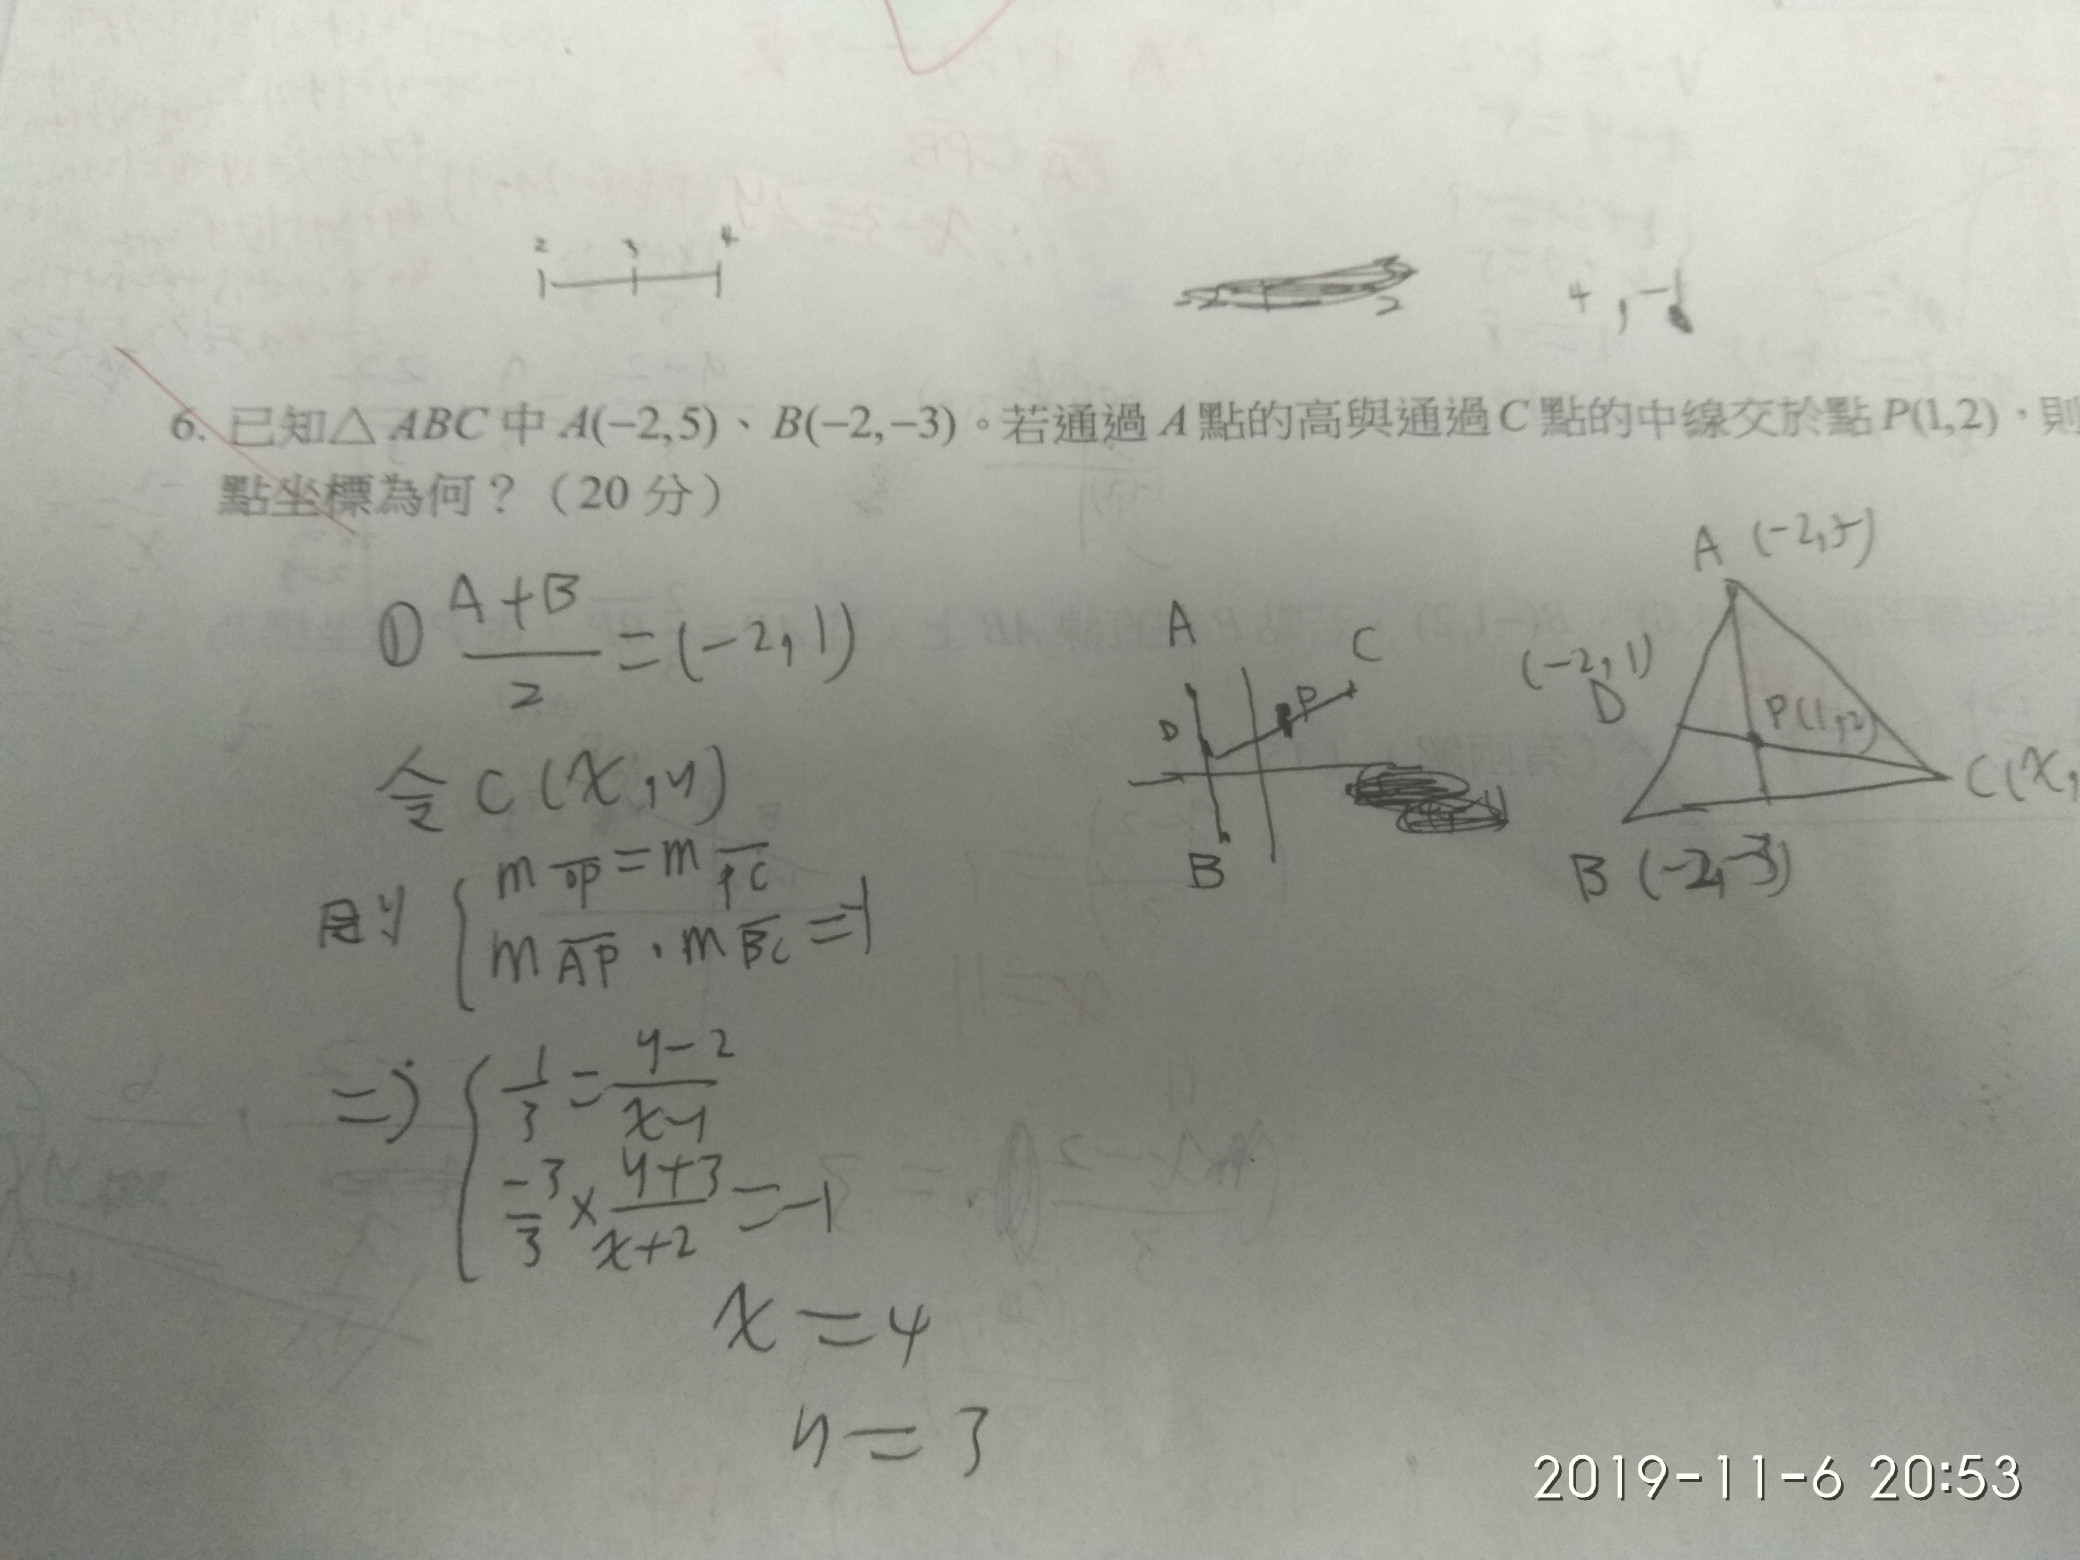 2 3 4
-2 2
4 , -1
6. 已知△ABC 中 A(−2,5)、B(−2,−3)。若通過 A 點的高與通過 C 點的中線交於點 P(1,2),則
點坐標為何?(20 分)
① (A+B)/2 = (-2, 1)
令 C (x, y)
則 { m DP = m PC
m AP · m BC = -1
=> { 1/3 = (y-2)/(x-1)
-3/3 × (y+3)/(x+2) = -1
x = 4
y = 3
A
C
D
P
B
A (-2,5)
(-2, 1)
D
P(1,2)
C(x,
B (-2,-3)
2019-11-6 20:53